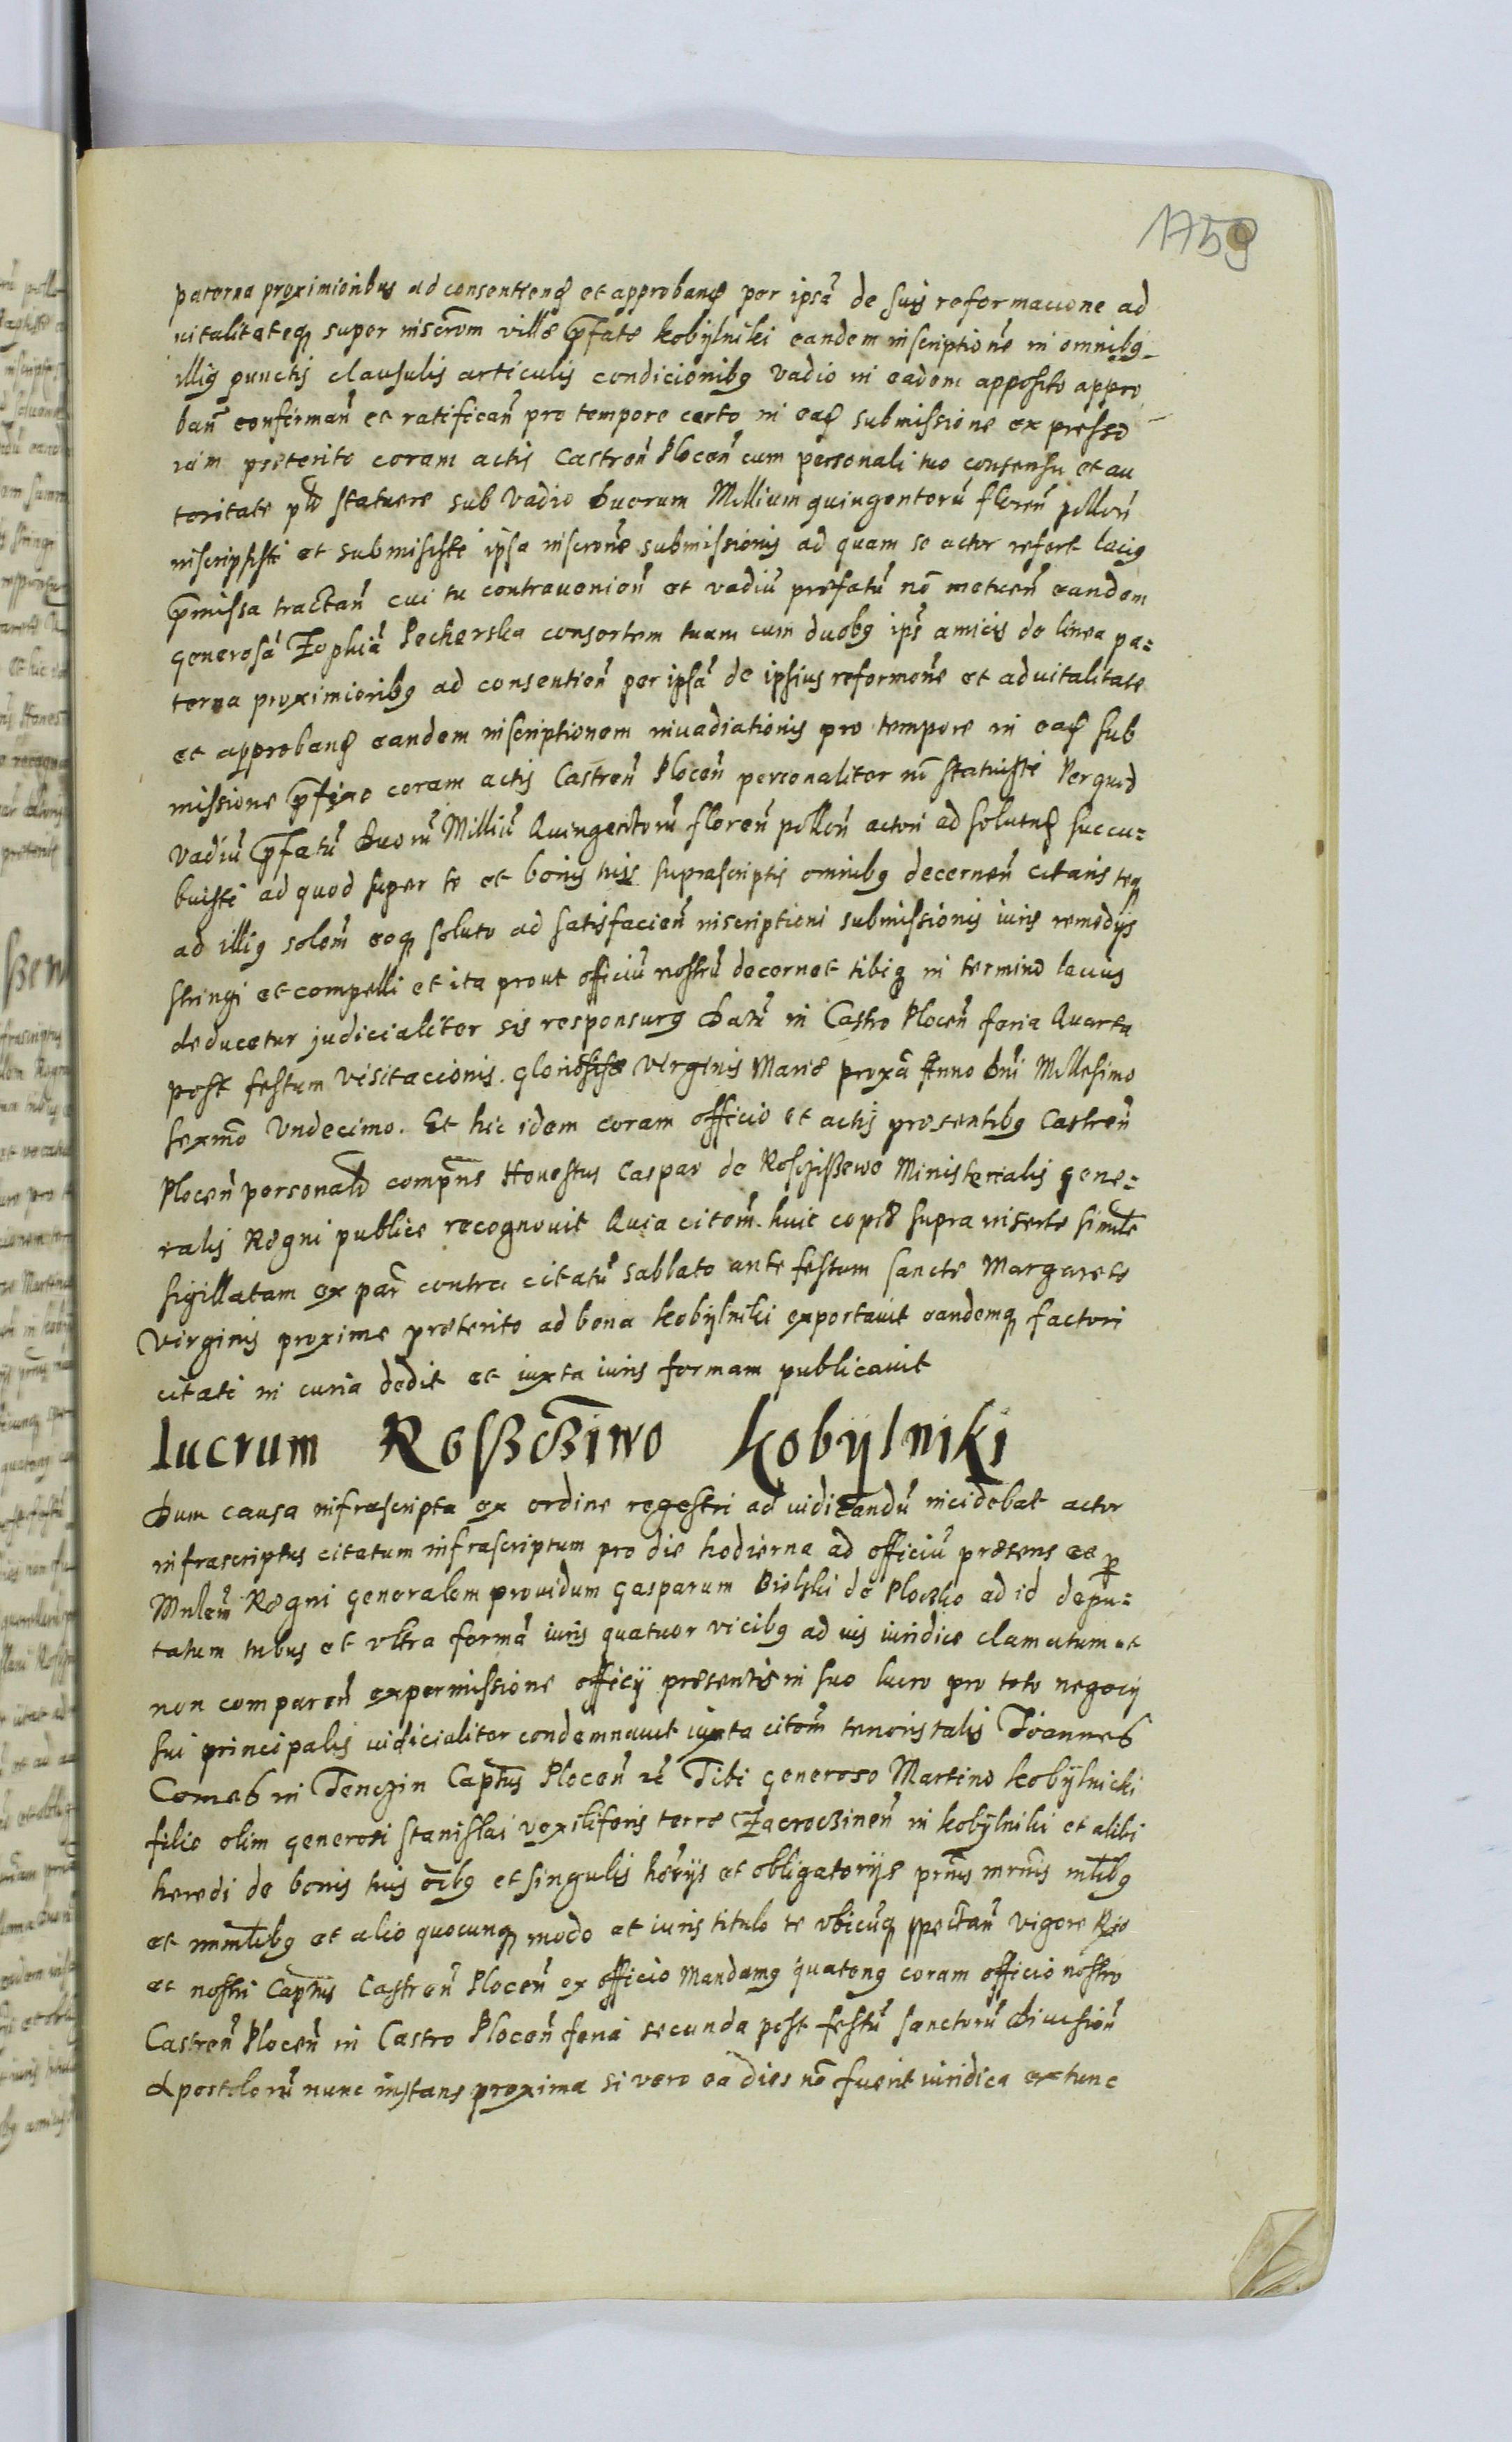 1759
paterna proximioribus ad consentiend et approband per ipsā de suis reformacione ad
vitalitateq super inscrōm villæ p̄fatæ Kobylniki eandem inscriptionē in omnibq
illiq punctis clausulis articulis condicionibq vadio in eadem apposito appro
bañ confirmañ et ratificañ pro tempore certo in ead submissione expresso
iam præterito coram actis Castreñ Ploceñ cum personali tuo consensu et au
toritate statuere sub vadio Duorum Millium quingentorū floreñ polloñ
inscripsisti et submisisti ipsa inscrōne submissionis ad quam se actor refert laciq
p̄missa tractañ cui tu contravenieñ et vadiū præfatū nō metueñ eandem
generosā Zophiā Pecherska consortem tuam cum duobq ips amicis de linea pa=
terna proximioribq ad consentieñ per ipsā de ipsius reformōne et advitalitate
et approband eandem inscriptionem invadiationis pro tempore in ead sub
missione p̄fixo coram actis Castreñ Ploceñ personaliter nō statuisti Per quod
vadiū p̄fatū Duorū Milliū Quingentorū floreñ polloñ actori ad solutnd succu=
buisti ad quod super te et bonis tuis suprascriptis omnibq decerneñ citaris teq
ad illiq soleñ eoq soluto ad satisfacieñ inscriptioni submissionis iuris remedys
stringi et compelli et ita prout officiū nostrū decernet tibiq in termino lacius
deducetur judicialiter sis responsurq Datū in Castro Ploceñ feria Quarta
post festum Visitacionis. gloriosissæ Virginis Mariæ proxā Anno Dni Millesimo
sexmō Undecimo. Et hic idem coram officio et actis præsentibq Castreñ
Ploceñ personalr compñs Honestus Caspar de Rosciszewo Ministerialis gene=
ralis Regni publice recognovit Quia citoñ. huic copiæ supra insertæ simile
sigillatam ex par contra citatū Sabbato ante festum sanctæ Margaretæ
Virginis proxime præterito ad bona Kobylniki exportavit eandemq factori
citati in curia dedit et iuxta iuris formam publicavit
Lucrum Roßcßiwo Kobÿlniki
Dum causa infrascripta ex ordine regestri ad iudicandū incidebat actor
infrascriptus citatum infrascriptum pro die hodierna ad officiū præsens et p
Mnleñ Regni generalem providum Gasparum Bielski de Ploczko ad id depu=
tatum tribus et ultra formā iuris quatuor vicibq ad ius iuridice clamatum et
non compareñ ex permissione officÿ præsentis in suo lucro pro toto negocÿ
sui principalis iudicialiter condemnavit iuxta citoñ tenoris talis Joannes
Comes in Tenczin Captus Ploceñ Tibi generoso Martino Kobÿlnicki
filio olim generosi Stanislai vexiliferis terræ Zacroczineñ in Kobÿlniki et alibi
heredi de bonis tuis oībq et singulis hærÿs et obligatorÿs prñis mrñis mlibq
et immlibq et alio quocunq modo et iuris titulo te ubicūq spectañ vigore Rio
et nostri Captus Castreñ Ploceñ ex officio Mandamq quatenq coram officio nostro
Castreñ Ploceñ in Castro Ploceñ feria secunda post festū sanctorū Divisioñ
Apostolorū nunc instans proxima si vero ea dies nō fuerit iuridica extunc